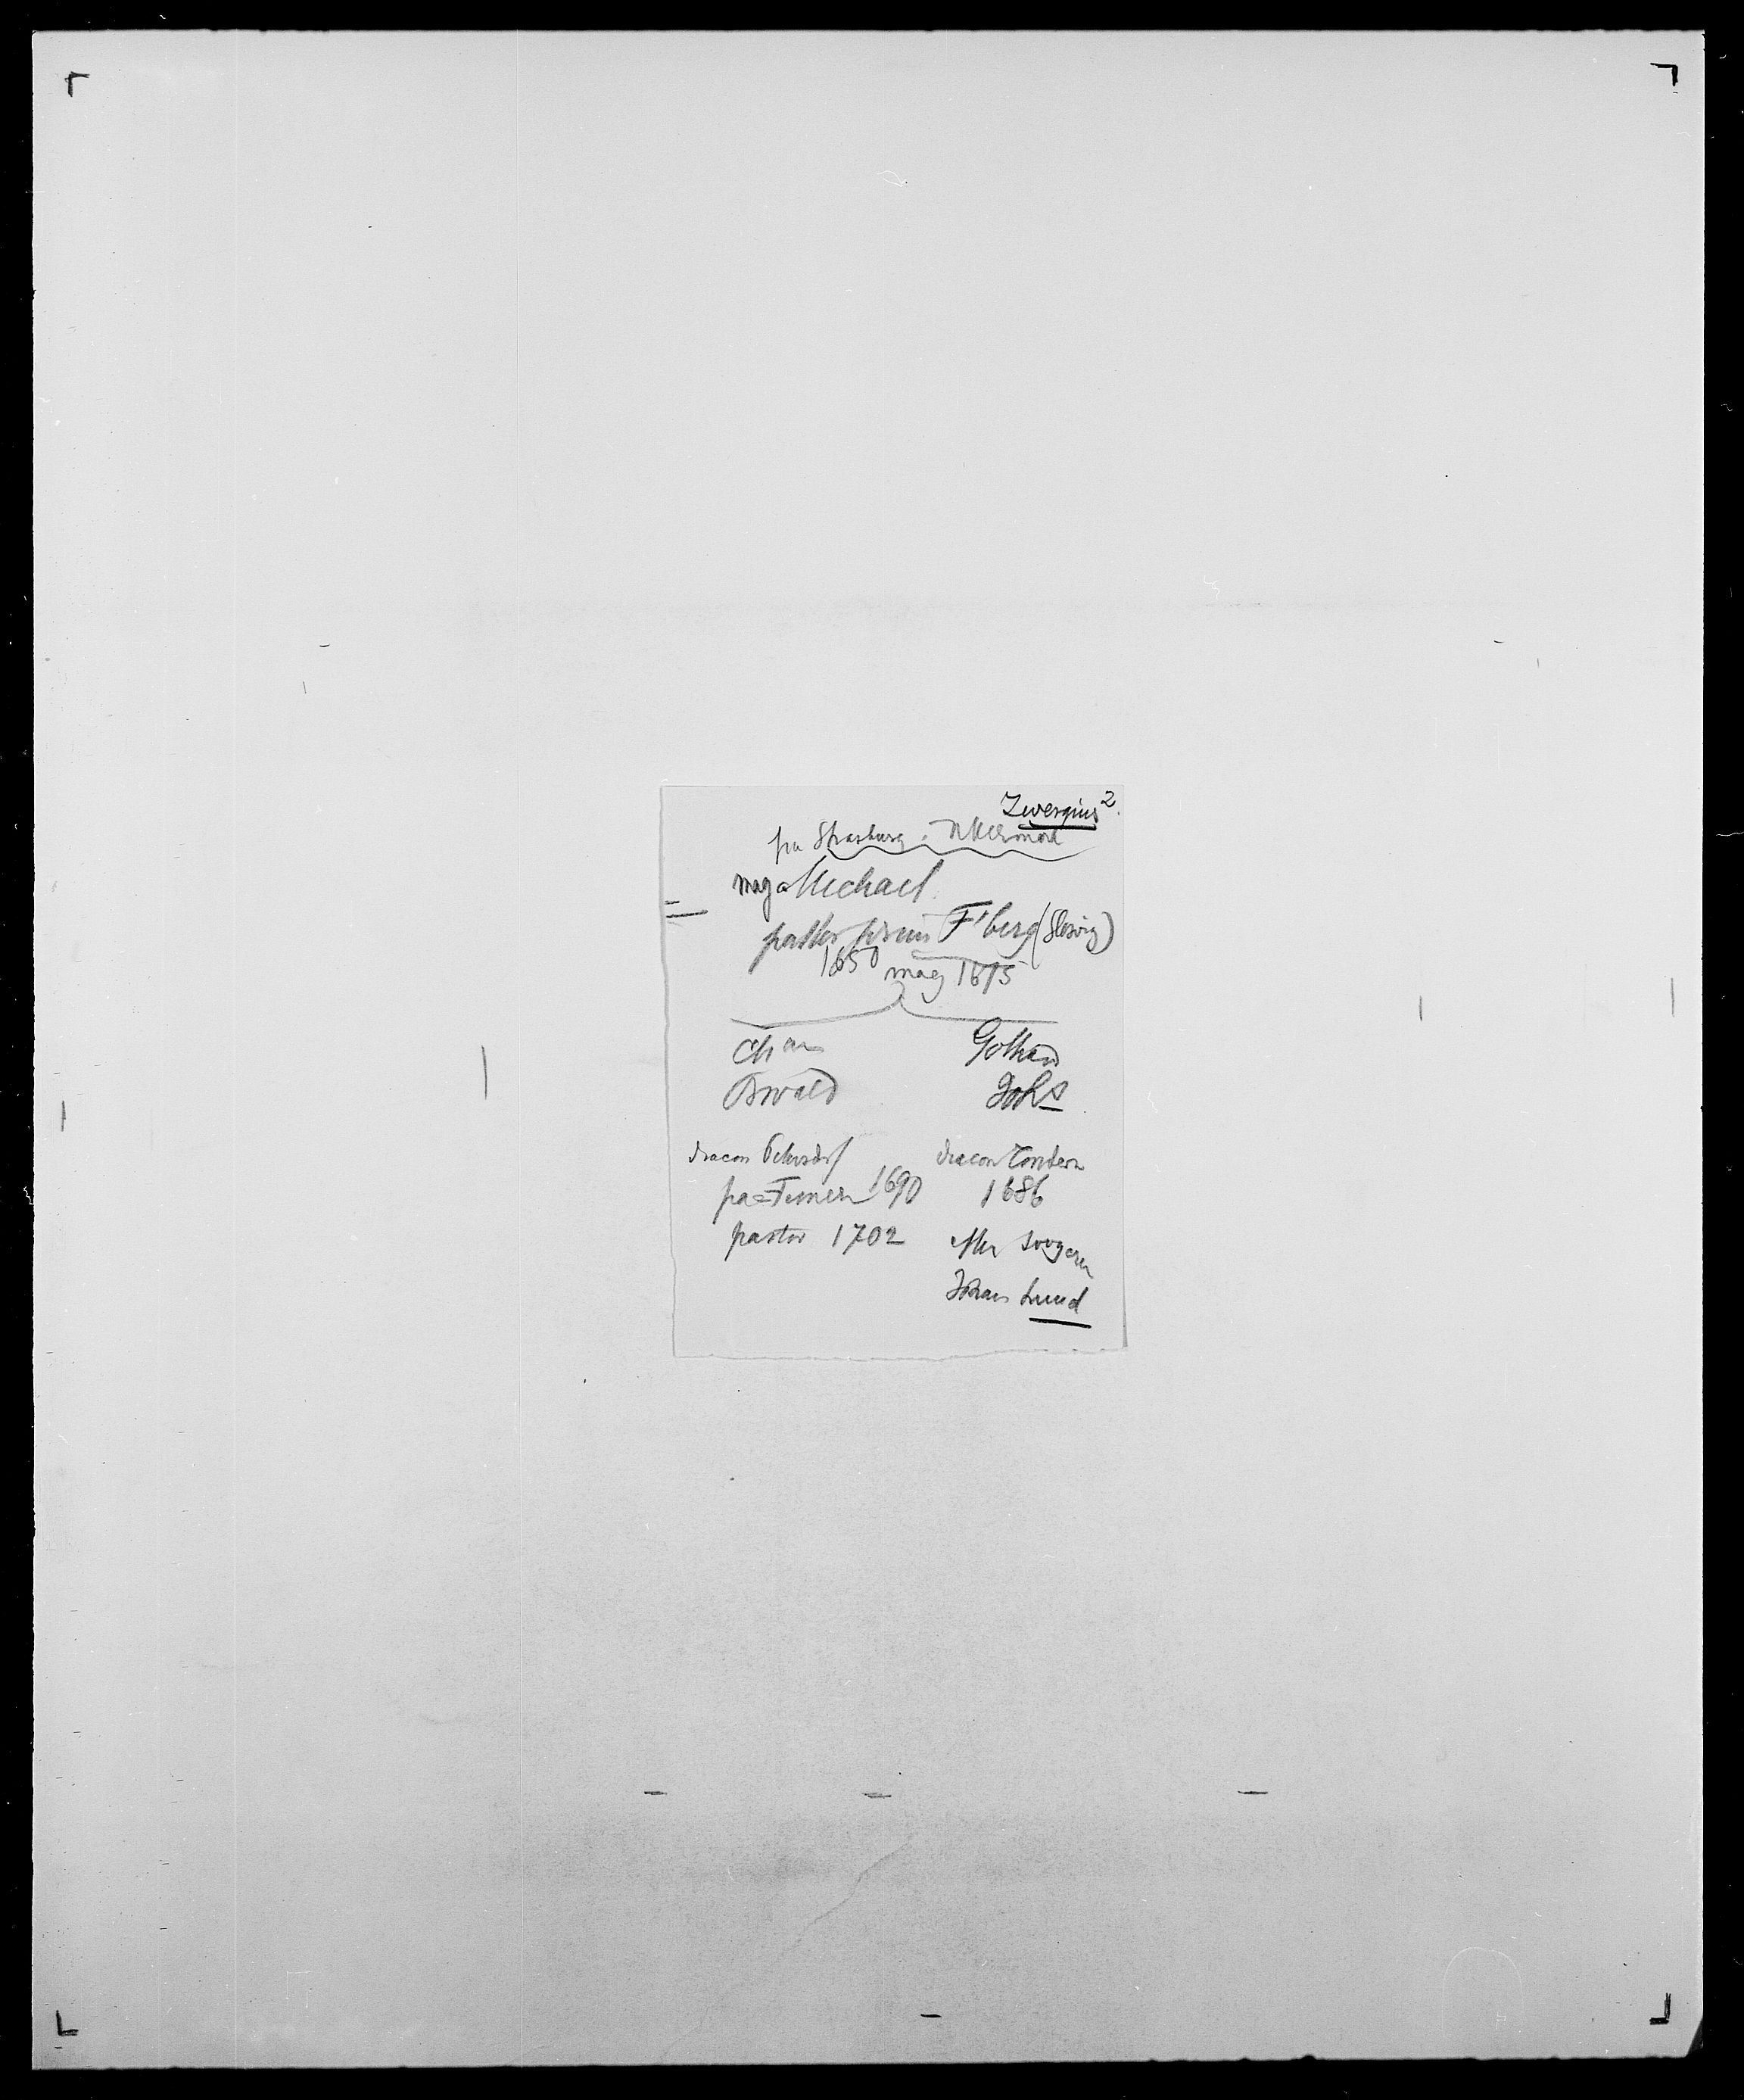 Zwergius 2.
fra Strasburg i Uckermark
mag Michael
pastor primus F'berg (Slesvig)
1650 mag 1675
Chr an Gotthard
Oswald Johs
diacon diacon Tondern
pa=Tinnen 1690 1686
pastor 1702 efter svogeren
Johan Lund